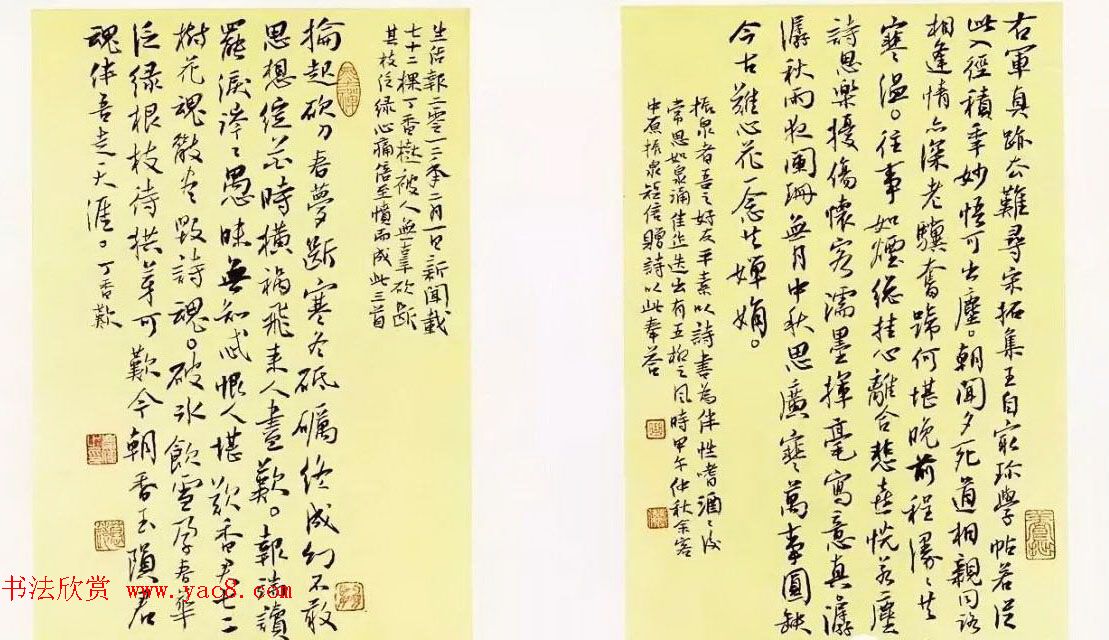 右軍真跡去難尋宋拓集王自最珍學帖若從
此入徑積年妙悟可出塵。朝聞夕死道相親同路
相逢情亦深老驥奮蹄何堪晚前程漫〻共
寒溫。往事如煙總挂心離合悲喜恍若塵
詩思樂擾傷懷客濡墨揮毫寫意真潺
潺秋雨夜闌珊無月中秋思廣寒萬事圓缺
今古難心花一念共嬋娟。
振泉者吾之好友平素以詩書為伴性嗜酒〻後
常思如泉涌佳作迭出有五柳之風時甲午仲秋余客
中京振泉短信贈詩以此奉答
生活報二零一三年二月一日新聞載
七十二棵丁香樹被人無辜砍斷
其枝泛綠心痛倍至憤而成此三首
掄起砍刀春夢斷寒冬砥礪終成幻不敢
思想綻花時橫禍飛來人盡歎。報端讀
罷淚潸〻愚昧無知忒恨人堪歎香君七二
樹花魂散盡毀詩魂。破冰飲雪孕春華
泛綠根枝待拱芽可歎今朝香玉隕君
魂伴吾走天涯。丁香歎
书法欣赏 www.yac8.com